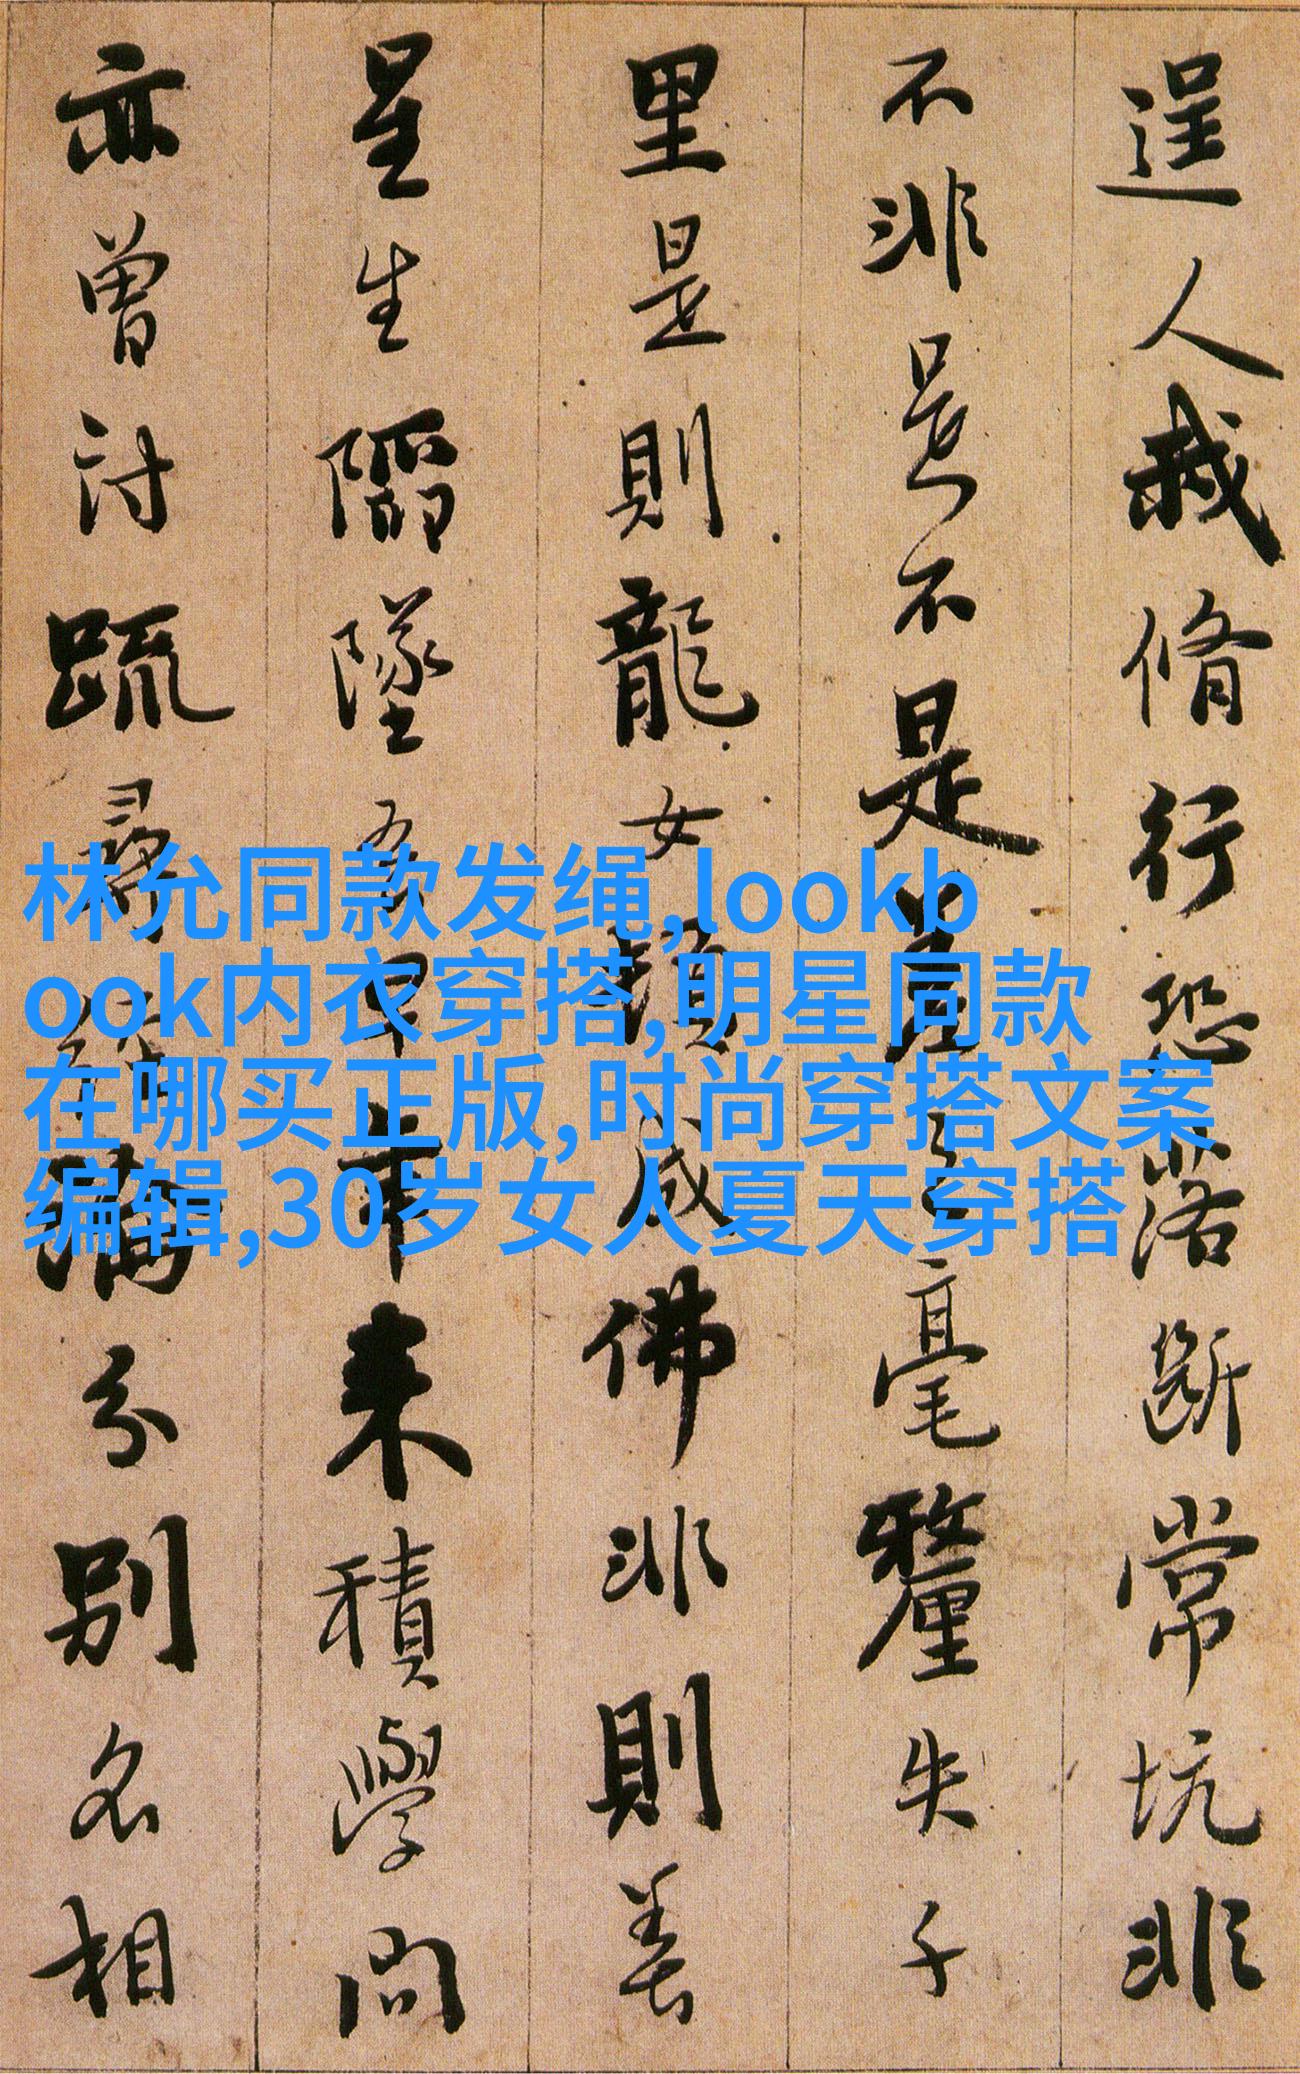 逞人我脩行恐落斷常坑非
不非是不是差之毫釐失千
里是則龍女頓成佛非則善
星生陷墜吾早年来積學問
亦曾討疏尋經論分別名相
林允同款发绳,lookb
ook内衣穿搭,明星同款
在哪买正版,时尚穿搭文案
编辑,30岁女人夏天穿搭